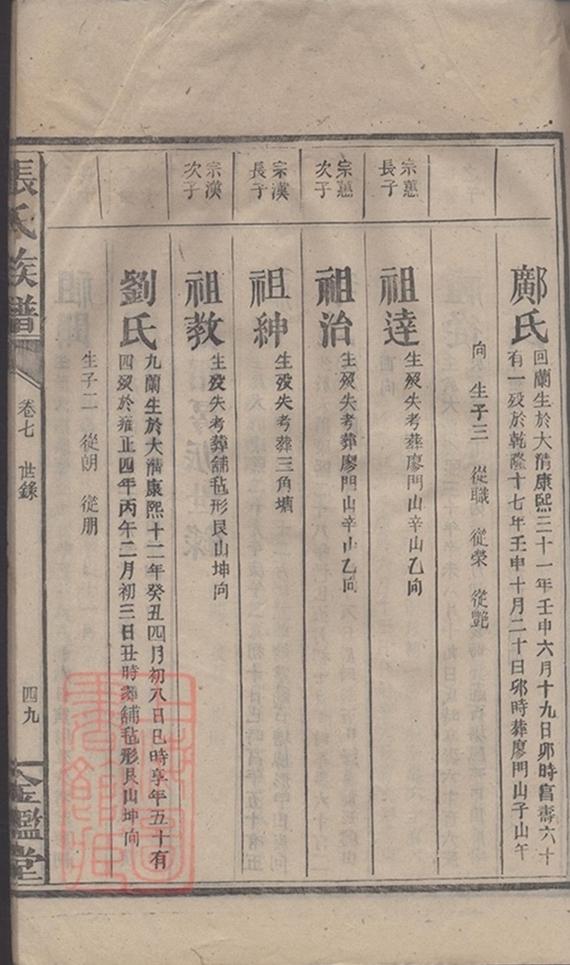 鄺氏
回蘭生於大清康熙三十一年壬申六月十九日卯時富壽六十
有一歿於乾隆十七年壬申十月二十日卯時葬廖門山子山午
向 生子三 從職 從榮 從艷
宗蕙
長子
祖達
生歿失考葬廖門山辛山乙向
宗蕙
次子
祖治
生歿失考葬廖門山辛山乙向
宗漢
長子
祖紳
生歿失考葬三角塘
宗漢
次子
祖教
生歿失考葬舖毡形艮山坤向
劉氏
九蘭生於大清康熙十二年癸丑四月初八日巳時享年五十有
四歿於雍正四年丙午二月初三日丑時葬舖毡形艮山坤向
生子二 從朗 從朋
張氏族譜
卷七 世錄
四九
金鑑堂